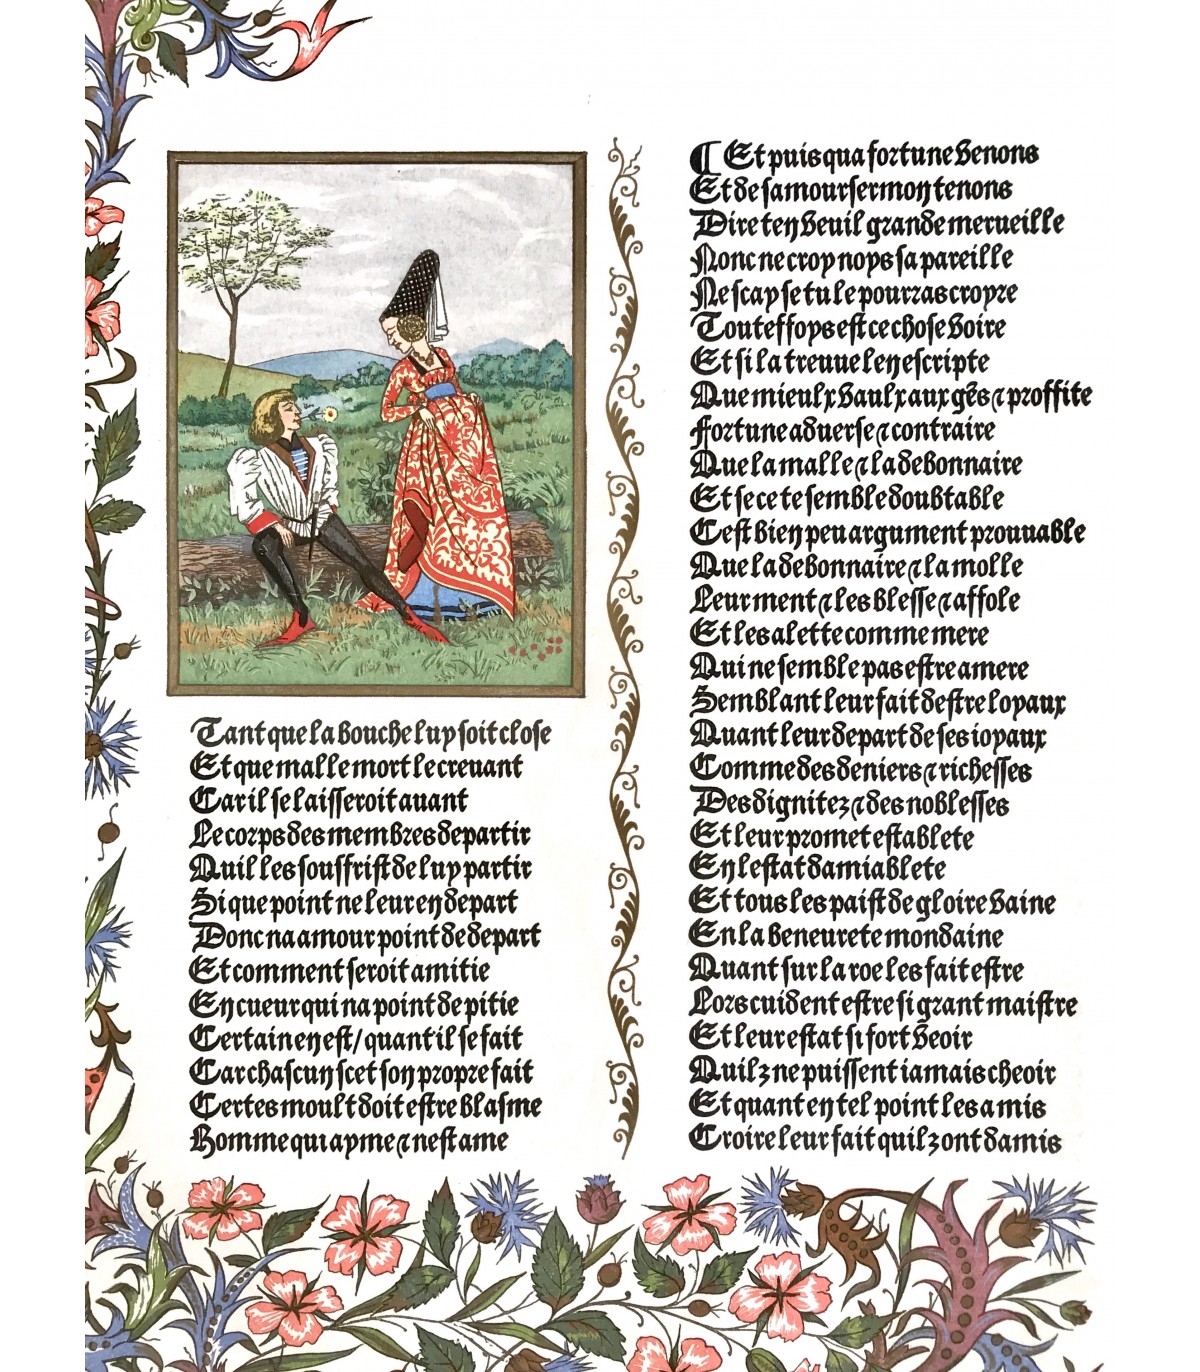 Tant que la bouche luy soit close
Et que malle mort le crevant
Car il se laisseroit avant
Le corps des membres departir
Quil les souffrist de luy partir
Si que point ne leur en depart
Donc na amour point de depart
Et comment seroit amitie
En cueur qui na point de pitie
Certain en est / quant il se fait
Car chascun scet son propre fait
Certes moult doit estre blasme
Homme qui ayme & nest ame
¶ Et puis qua fortune venons
Et de samour sermon tenons
Dire ten veuil grande merueille
Nonc ne croy noys sa pareille
Ne scay se tu le pourras croyre
Touteffoys est ce chose voire
Et si la treuue len escripte
Que mieulx vaulx aux gẽs & proffite
Fortune aduerse & contraire
Que la malle & la debonnaire
Et se ce te semble doubtable
Cest bien peu argument prouuable
Que la debonnaire & la molle
Leur ment & les blesse & affole
Et les alette comme mere
Qui ne semble pas estre amere
Semblant leur fait destre loyaux
Quant leur depart de ses ioyaux
Comme des deniers & richesses
Des dignitez & des noblesses
Et leur promet establete
En lestat damiablete
Et tous les paist de gloire vaine
En la beneurete mondaine
Quant sur la roe les fait estre
Lors cuident estre si grant maistre
Et leur estat si fort veoir
Quilz ne puissent iamais cheoir
Et quant en tel point les a mis
Croire leur fait quilz ont damis